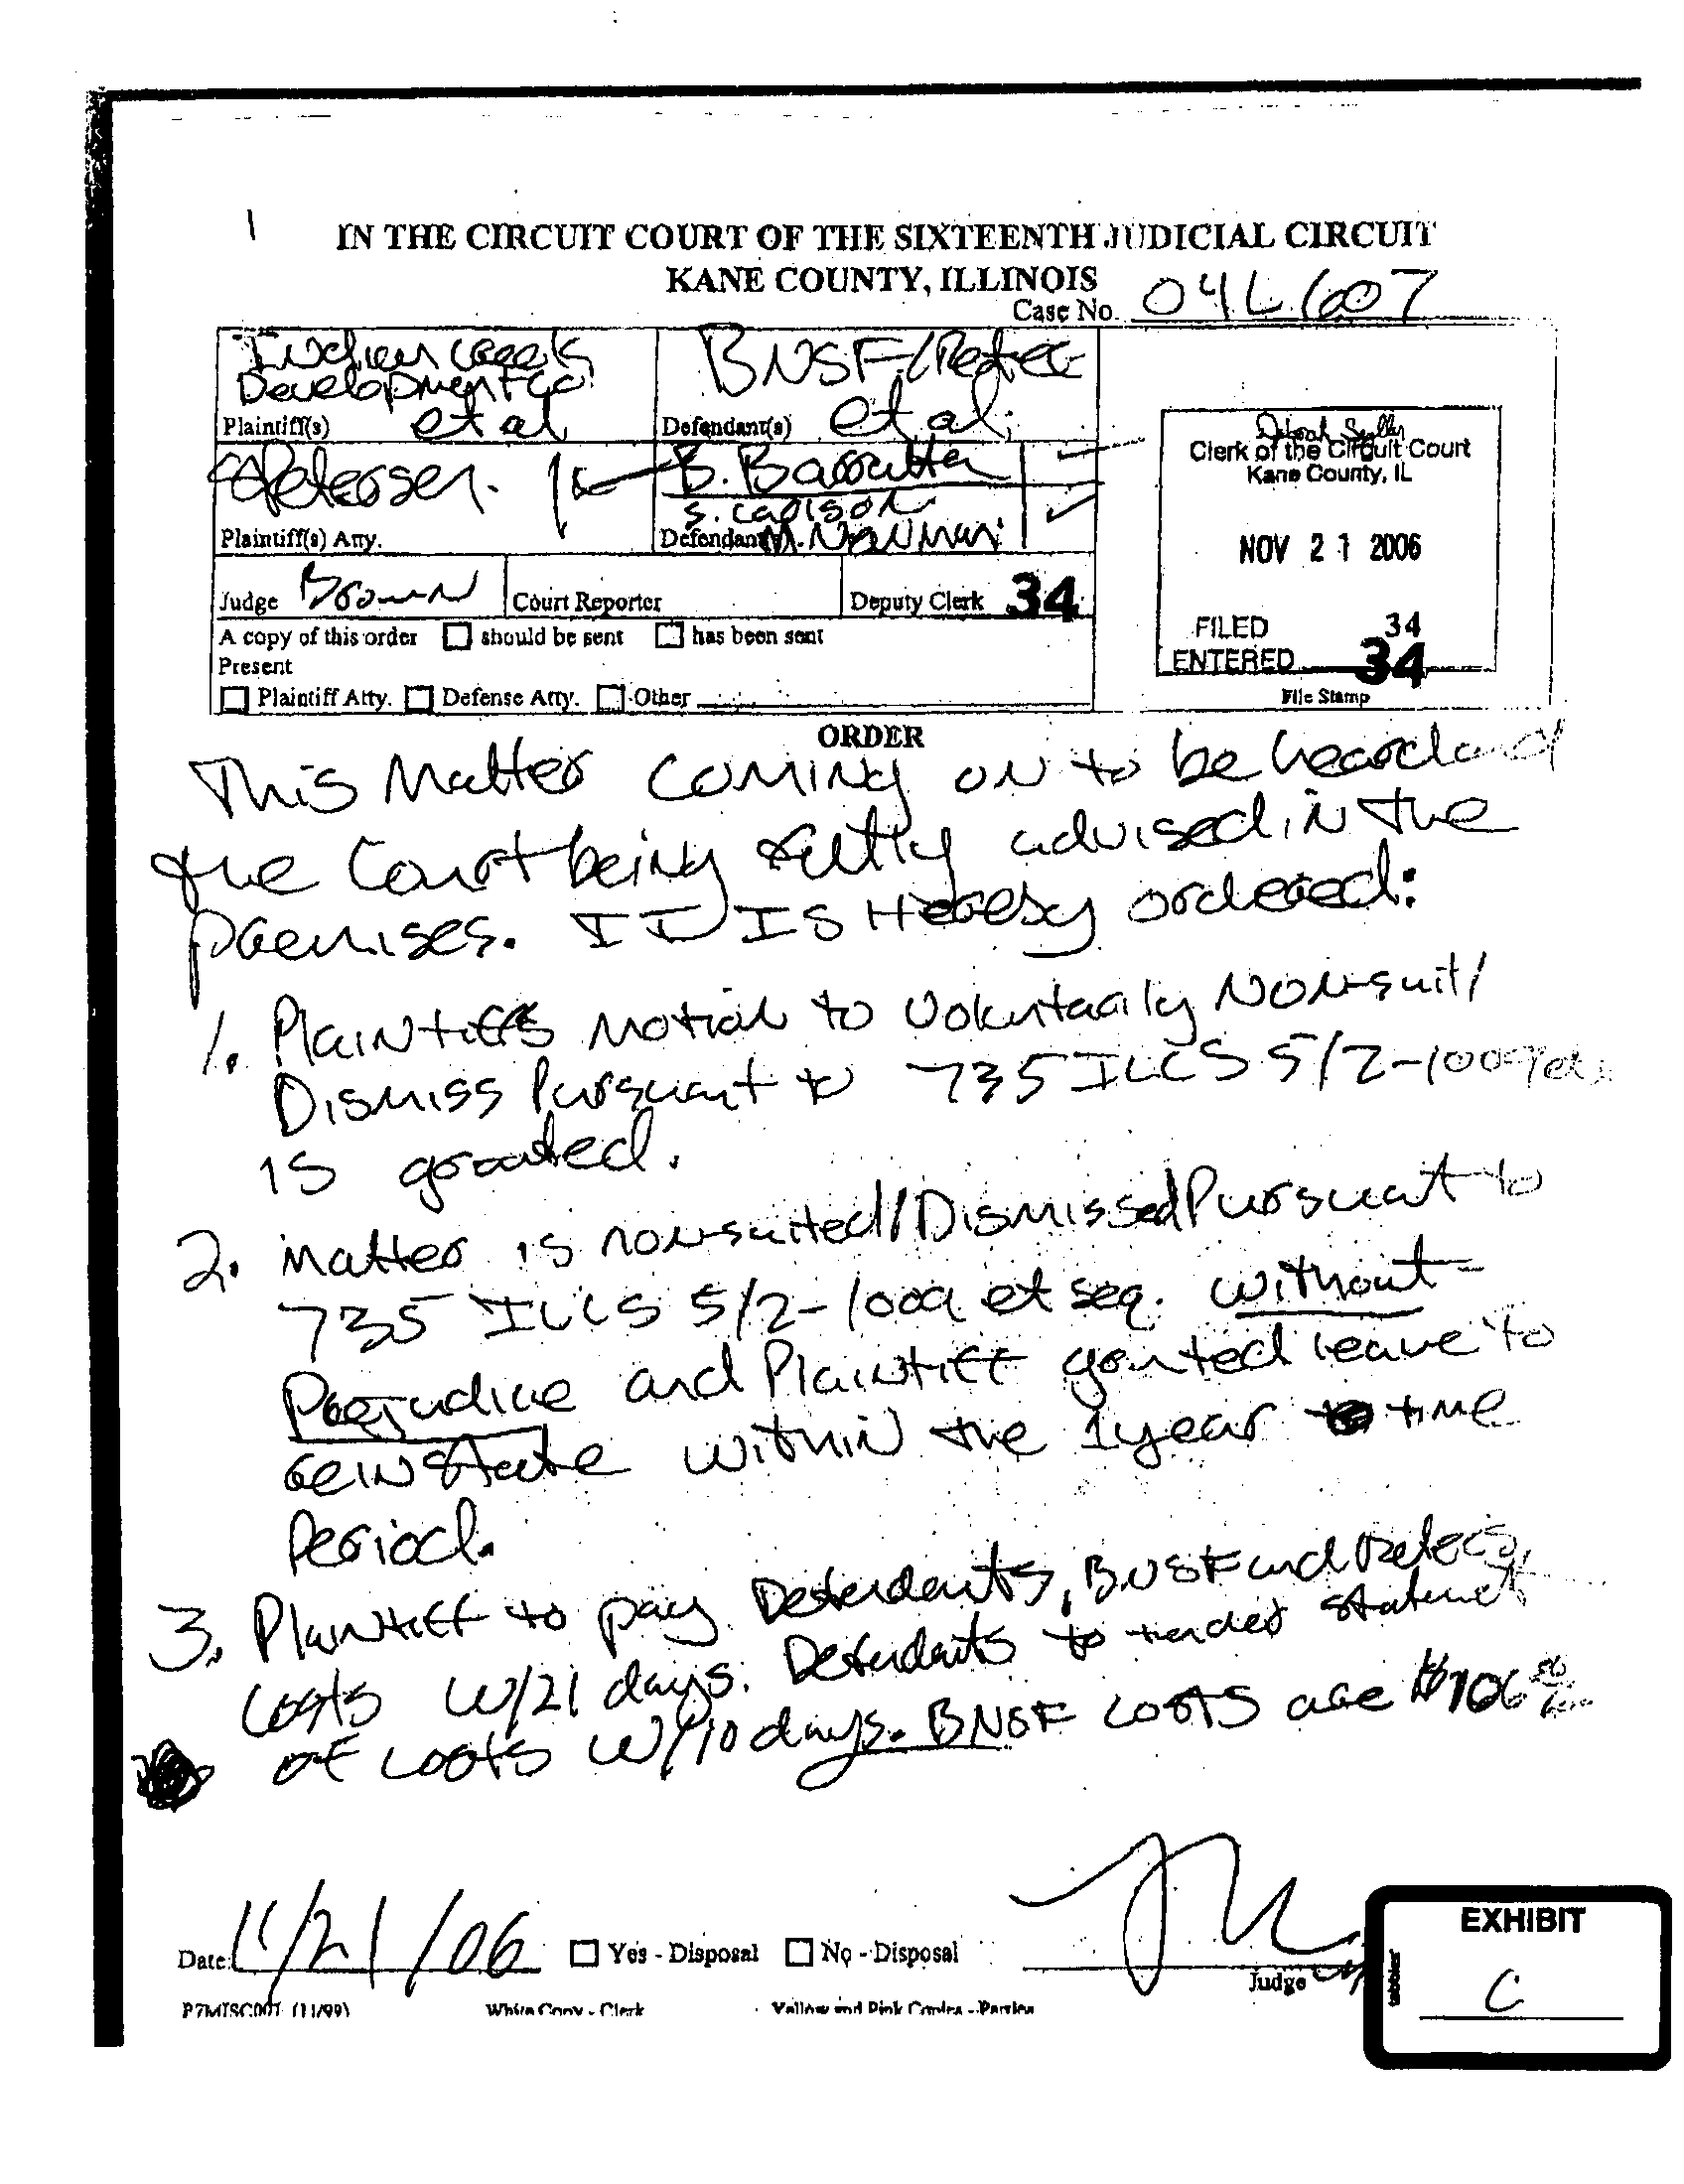 IN THE CIRCUIT COURT OF THE SIXTEENTH JUDICIAL CIRCUIT
KANE COUNTY, ILLINOIS
Case No. 04 L 607
Indian Creek
Development Co.
Plaintiff(s) et al
BNSF/Retec
Defendant(s) et al.
Petersen
Plaintiff(s) Atty.
B. Barratta
S. Carlson
M. Newman
Judge Brown
Court Reporter
Deputy Clerk 34
A copy of this order should be sent has been sent
Present
Plaintiff Atty. Defense Atty. Other
Clerk of the Circuit Court
Kane County, IL
NOV 21 2006
FILED 34
ENTERED 34
File Stamp
ORDER
This Matter coming on to be heard and
the Court being fully advised in the
premises. IT IS Hereby ordered:
1. Plaintiffs Motion to Voluntarily Non-suit/
Dismiss Pursuant to 735 ILCS 5/2-1009
is granted.
2. Matter is non-suited/Dismissed Pursuant to
735 ILCS 5/2-1009 et seq. without
Prejudice and Plaintiff granted leave to
reinstate within the 1 year time
Period.
3. Plaintiff to pay Defendants, BNSF and Retec's
costs w/21 days. Defendants to tender statement
of costs w/10 days. BNSF costs are $706
Date: 11/21/06 Yes - Disposal No - Disposal
Judge
P7MISC001 (11/99) White Copy - Clerk Yellow and Pink Copies - Parties
EXHIBIT
tabbies
C